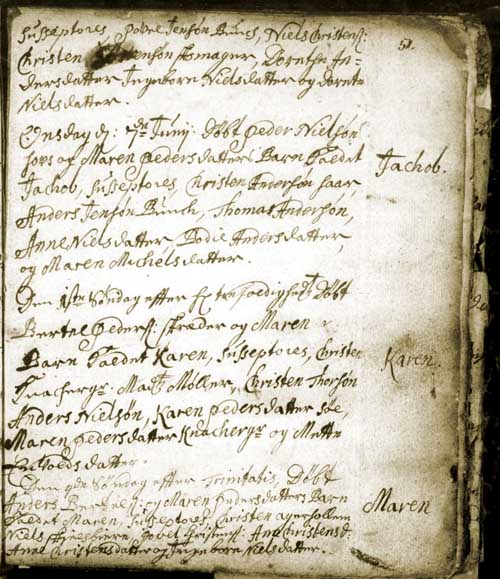 Susseptores, Povel Jensøn Buuch, Niels Christens:
Christen Skomager, Dorethe An-
dersdatter Ingeborn Nielsdatter og Dorete
Nielsdatter.
51.
Onsdag d: 7de Junij: Døbt Peder Nielsøn
og Maren Pedersdatters Barn Kaldet
Jachob, Susseptores, Christen Andersøn
Anders Jensøn Buuch, Thomas Andersøn,
Anne Nielsdatter, Bodil Andersdatter,
og Maren Michelsdatter.
Jachob.
Den 1ste Søndag efter Døbt
Bertel Peders: Skræder og Maren
Barn Kaldet Karen, Susseptores, Christen
Mads Møller, Christen Thorsøn
Anders Nielsøn, Karen Pedersdatter
Maren Pedersdatter og Mette
datter.
Karen.
Den Søndag efter Trinitatis, Døbt
Anders og Maren Pedersdatters Barn
Kaldet Maren, Susseptores, Christen
Niels Anne Christensd:
Anne Christensdatter og Ingeborn Nielsdatter.
Maren